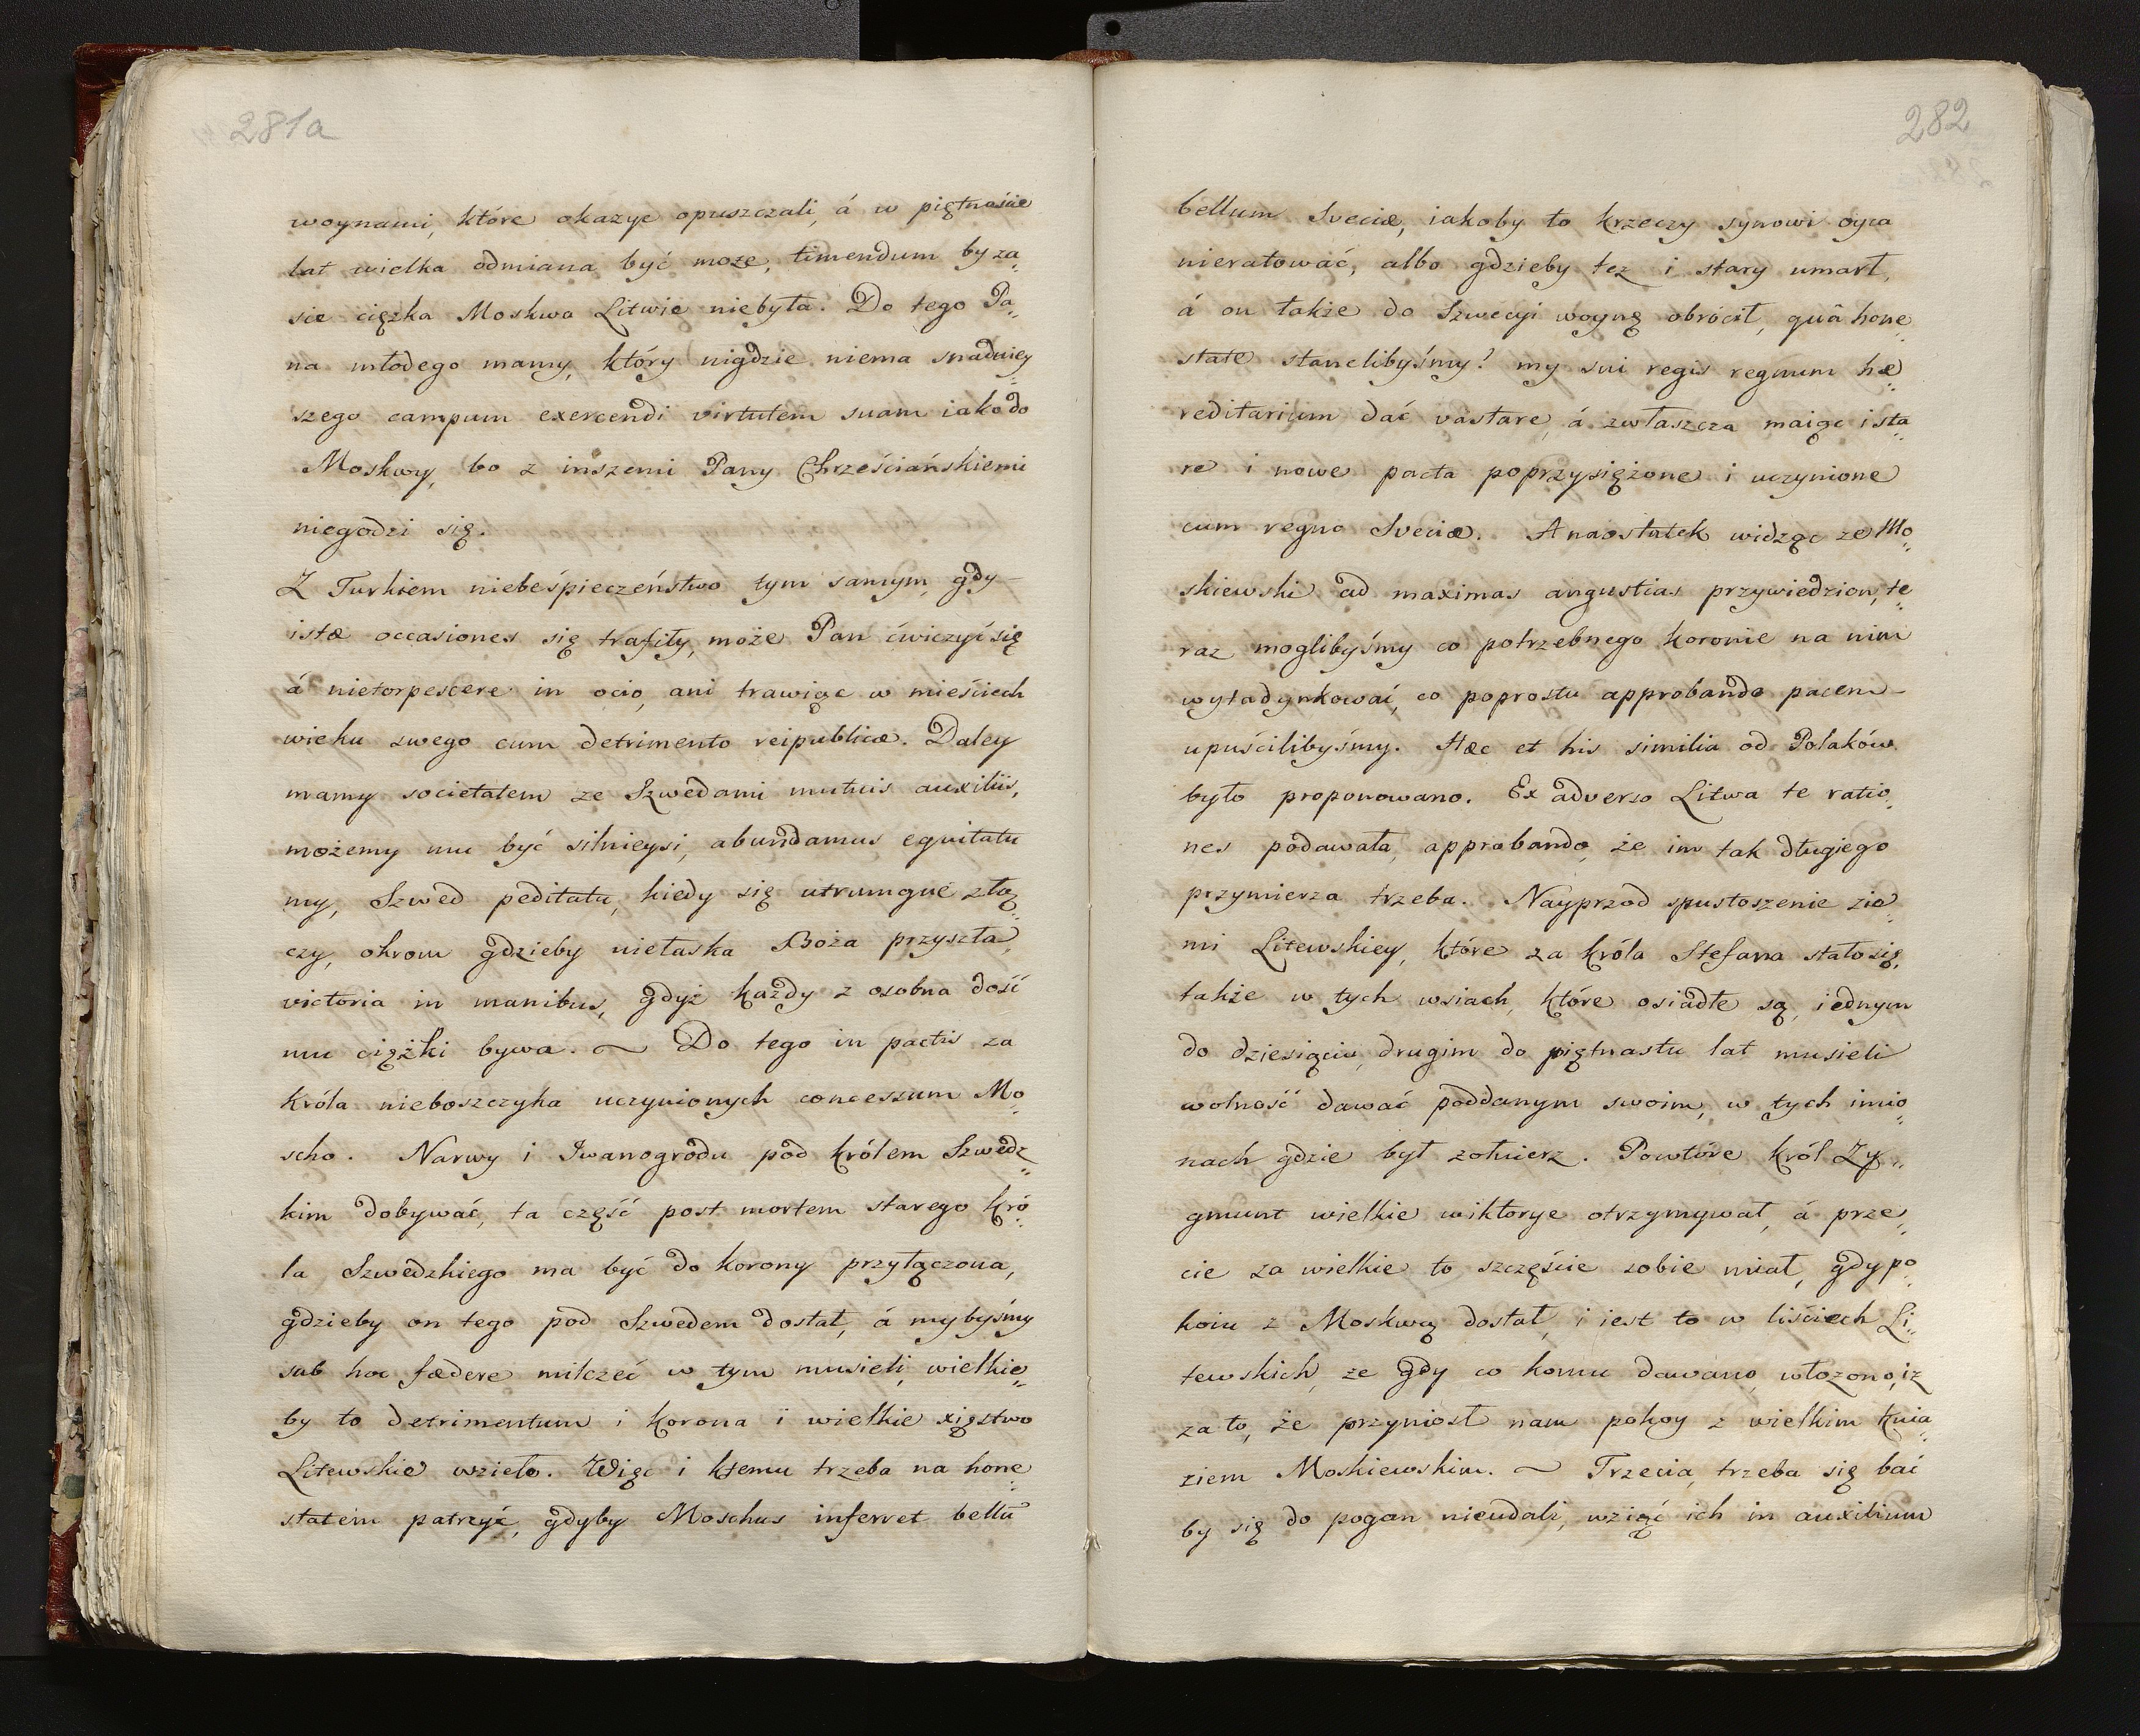 281a
woynami, które okazye opuszczali, á w piętnaście
lat wielka odmiana być moze, timendum by za„
sie ciężka Moskwa Litwie niebyła. Do tego Pa„
na młodego mamy, który nigdzie niema snadniey„
szego campum exercendi virtutem suam iako do
Moskwy, bo z inszemi Pany Chrześciańskiemi
niegodzi się.
Z Turkiem niebeśpieczeństwo tym samym, gdy
istæ occasiones się trafiły, może Pan ćwiczyć się
á nietorpescere in ocio, ani trawiąc w mieściech
wieku swego cum detrimento reipublicæ. Daley
mamy societatem ze Szwedami mutuis auxiliis,
możemy mu być silnieysi, abundamus equitatu
my, Szwed peditatu, kiedy się utrumque złą„
czy, okrom gdzieby niełaska Boża przyszła,
victoria in manibus, gdyż każdy z osobna dość
mu ciężki bywa. ~ Do tego in pactis za
króla nieboszczyka uczynionych concessum Mo„
scho. Narwy i Iwanogrodu pod królem Szwedz„
kim dobywać, ta część post mortem starego kró„
la Szwedzkiego ma być do korony przyłączona,
gdzieby on tego pod Szwedem dostał, á mybyśmy
sub hoc fædere milczeć w tym musieli, wielkie„
by to detrimentum i korona i wielkie xięstwo
Litewskie wzieło. Więc i ktemu trzeba na hone„
statem patrzyć, gdyby Moschus inferret bellū
282
bellum Sveciæ, iakoby to krzeczy synowi oyca
nieratować, albo gdzieby tez i stary umarł,
á on także do Szwecyi woynę obrócił, quâ hone„
state stanelibyśmy? my sui regis regnum hæ„
reditarium dać vastare, á zwłaszcza maiąc i sta„
re i nowe pacta poprzysiężone i uczynione
cum regno Sveciæ. A naostatek widząc ze Mo„
skiewski ad maximas angustias przywiedzion, te„
raz moglibyśmy co potrzebnego koronie na nim
wytadynkować, co poprostu approbando pacem
upuścilibyśmy. Hæc et his similia od Polaków
było proponowano. Ex adverso Litwa te ratio„
nes podawała, approbando, że im tak długiego
przymierza trzeba. Nayprzod spustoszenie zie„
mi Litewskiey, które za króla Stefana stało się,
także w tych wsiach, które osiadłe są, iednym
do dziesiąciu, drugim do piętnastu lat musieli
wolność dawać poddanym swoim, w tych imio„
nach gdzie był zołnierz. Powtóre król Zy„
gmunt wielkie wiktorye otrzymywał, á prze„
cie za wielkie to szczęście sobie miał, gdy po„
koiu z Moskwą dostał, i iest to w liściech Li„
tewskich, ze gdy co komu dawano, włozono, iz
za to, że przyniosł nam pokoy z wielkim Knia„
ziem Moskiewskim. ~ Trzecia, trzeba się bać
by się do pogan nieudali, wziąć ich in auxilium